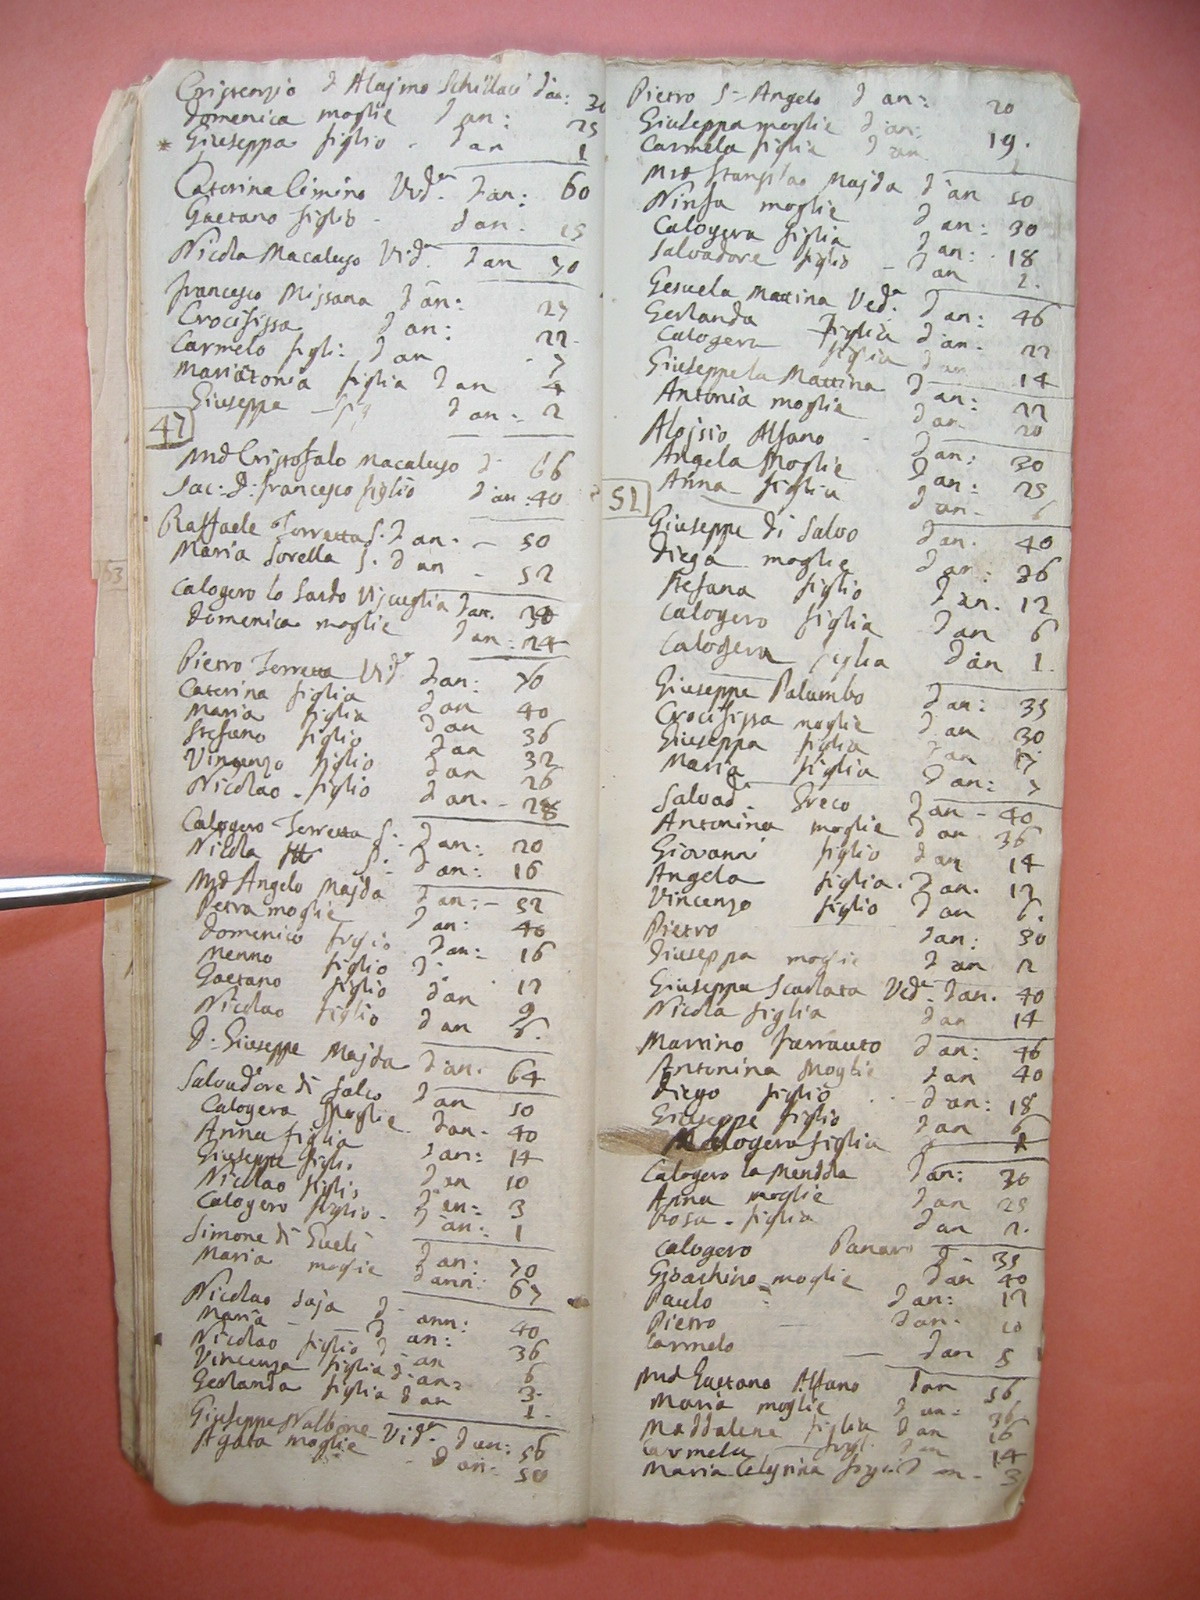 Crispenzio d'Alajmo Schillaci d'an: 30
Domenica moglie d'an: 25
* Giuseppa figlio - d'an 1
Caterina Cimino Vedᵃ d'an: 60
Gaetano figlio - d'an: 15
Nicola Macaluso Vidᵃ d'an 70
Francesco Missana d'an: 27
Crocifissa d'an: 22
Carmelo figli: d'an 7
Mariatonia figlia d'an 4
Giuseppa d'an: 2
47
Mrd Cristofalo Macaluso d' 66
Sac: D: Francesco figlio d'an: 40
Raffaele Torretta S. d'an. - 50
Maria Sorella S. d'an - 52
Calogero lo Sardo d'an.
Domenica moglie d'an: 24
Pietro Torretta Vidᵒ d'an: 70
Caterina figlia d'an 40
Maria figlia d'an 36
Stefano figlio d'an 32
Vincenzo figlio d'an 26
Nicolao - figlio d'an. - 28
Calogero Torretta S. d'an: 20
Nicola S. d'an: 16
Mrd Angelo Majda d'an: - 52
Petra moglie d'an: 40
Domenico figlio d'an: 16
Menno figlio d' 12
Gaetano figlio d'an 9
Nicolao figlio d'an 6.
D. Giuseppe Majda d'an. 64
Salvadore di Salvo d'an 50
Calogera Moglie d'an. 40
Anna figlia d'an: 14
Giuseppe figli. d'an 10
Nicolao figlio d'an: 3
Calogero figlio - d'an: 1
Simone di Gueli d'an: 70
Maria moglie d'ann: 67
Nicolao Saja d'ann: 40
Maria d'an: 36
Nicolao figlio d'an 6
Vincenza figlia d'an: 3.
Geolanda figlia d'an 1.
Giuseppe Nalbone Vidᵒ d'an: 56
Agata moglie - d'an: 50
Pietro S= Angelo d'an: 20
Giuseppa moglie d'an: 19.
Carmela figlia d'an
Mrd Stanislao Majda d'an 50
Ninfa moglie d'an: 30
Calogera figlia d'an: 18
Salvadore figlio - d'an 2.
Gesuela Mattina Vedᵃ d'an: 46
Gerlanda figlia d'an: 22
Calogera figlia d'an 14
Giuseppe la Mattina d'an: 22
Antonia moglie d'an 20
Alojsio Alfano - d'an: 30
Angela Moglie d'an: 25
Anna figlia d'an -
51
Giuseppe di Salvo d'an. 40
Diega moglie d'an: 36
Stefana figlio d'an. 12
Calogero figlia d'an 6
Calogera figlia d'an 1.
Giuseppe Palumbo d'an: 35
Crocifissa moglie d'an 30
Giuseppa figlia d'an
Maria figlia d'an: 7
Salvadᵉ Greco d'an - 40
Antonina moglie d'an 36
Giovanni figlio d'an 14
Angela figlia. d'an. 12
Vincenzo figlio d'an 6.
Pietro d'an: 30
Giuseppa moglie d'an 2
Giuseppa Scarlata Vedᵃ d'an. 40
Nicola figlia d'an 14
Martino Farrauto d'an: 46
Antonina Moglie d'an 40
Diego figlio d'an: 18
Giuseppe figlio d'an 6
Calogera figlia
Calogero la Mendola d'an: 30
Anna moglie d'an 25
Rosa - figlia d'an 2.
Calogero Panaro d' 35
Gioachino moglie d'an 40
Paulo d'an: 12
Pietro d'an. 10
Carmelo d'an 5
Mrd Gaetano Alfano d'an 56
Maria moglie d'an: 36
Maddalena figlia d'an 16
Carmela figl. d'an 14
Maria Celestina figlia d'an - 3